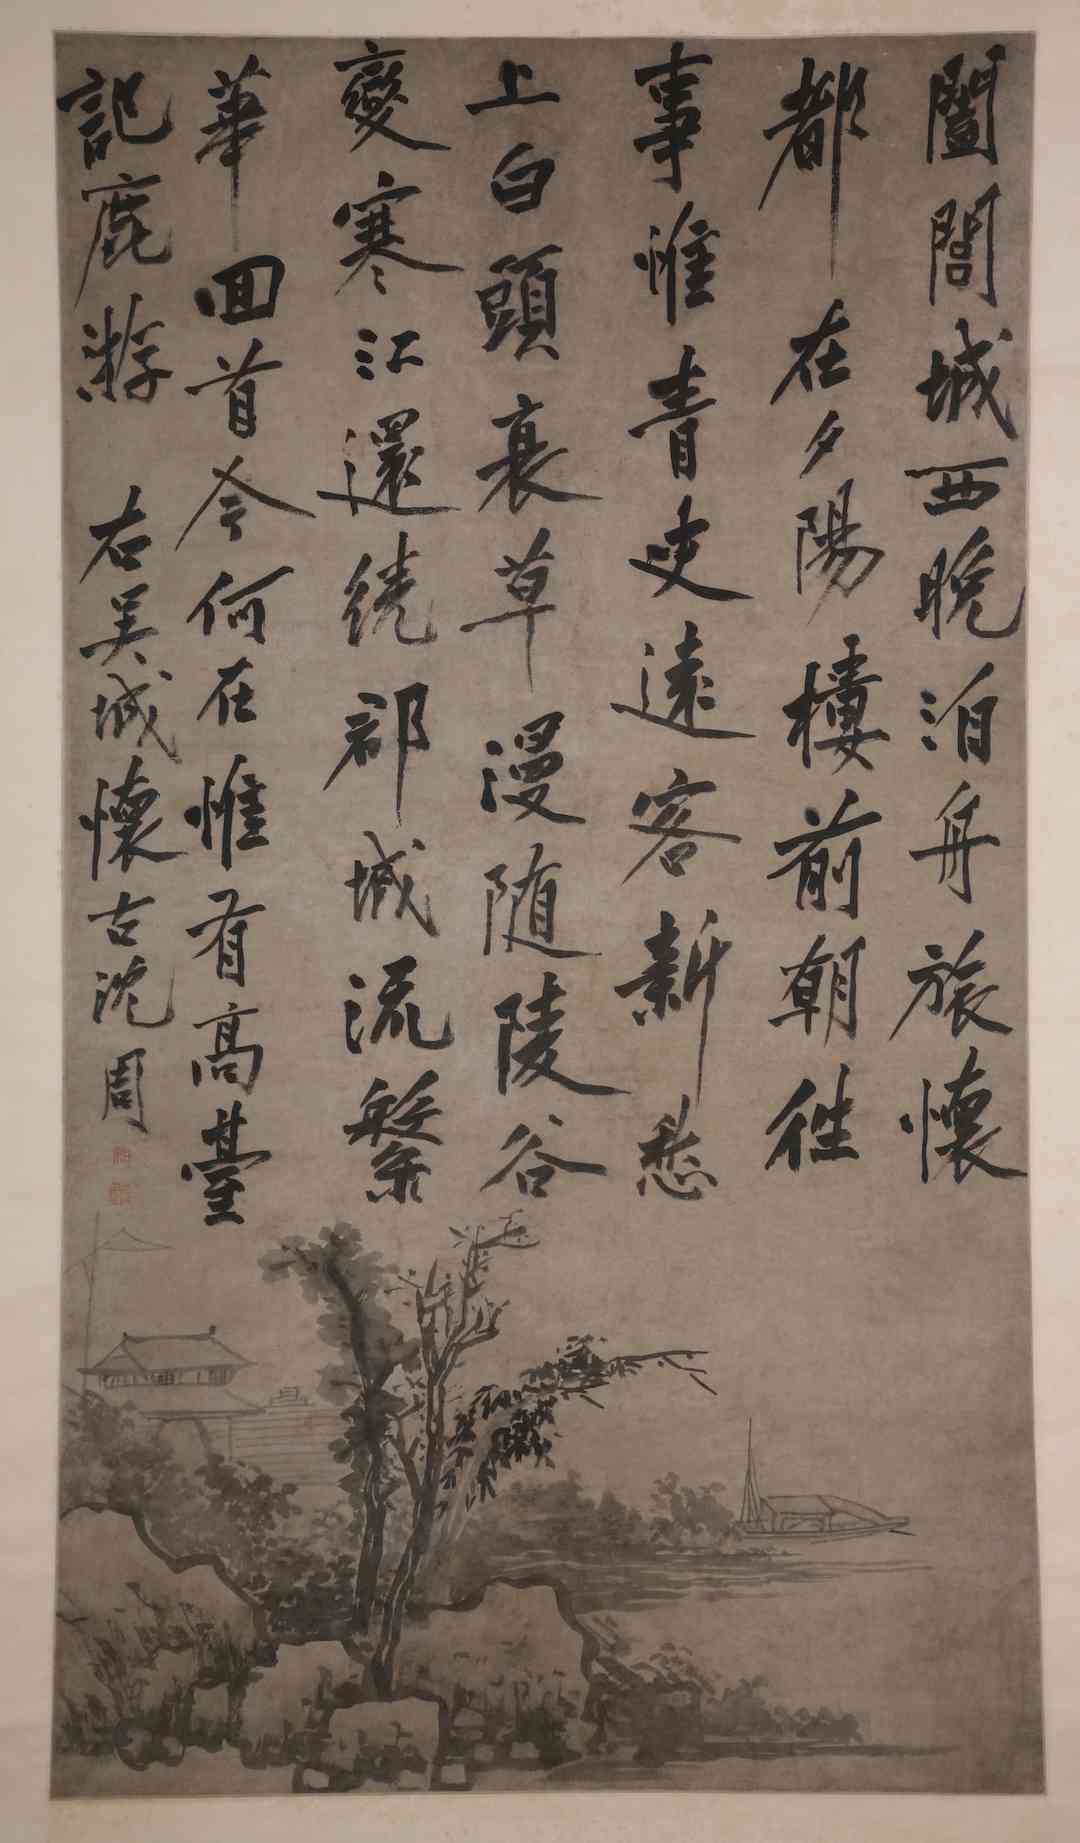 闔閭城西晚泊舟旅懷
都在夕陽樓前朝往
事惟青史遠客新愁
上白頭衰草漫随陵谷
變寒江還繞郡城流繁
華回首今何在惟有高臺
記鹿游 右吳城懷古沈周